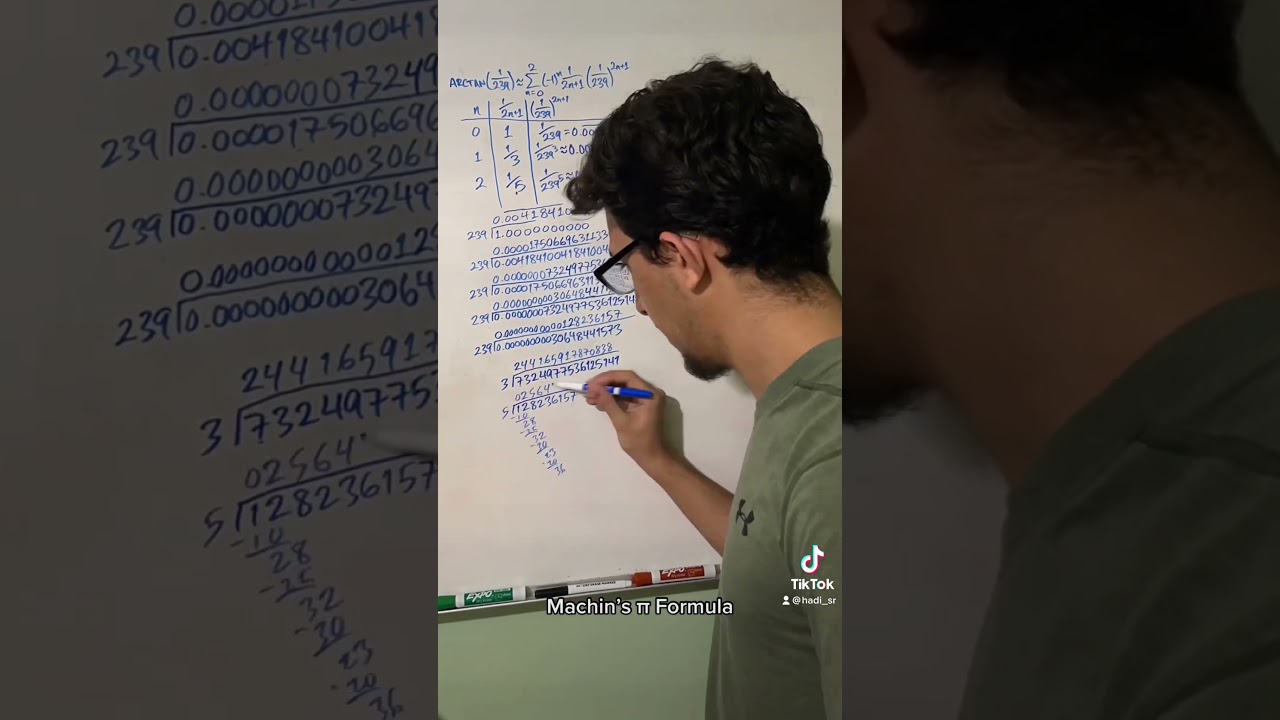 ARCTAN(1/239) ≈ 2 Σ n=0 (-1)^n 1/2n+1 (1/239)^2n+1
n | 1/2n+1 | (1/239)^2n+1
0 | 1 | 1/239 = 0.00
1 | 1/3 | 1/239^3 ≈ 0.00
2 | 1/5 | 1/239^5 ≈
0.0041841
239 1.0000000000
0.00001750669631133
239 0.00418410041841004
0.00000007324977536
239 0.0000175066963113
0.000000000306484415
239 0.00000007324977536125141
0.00000000000128236157
239 0.00000000030648441573
244165917870838
3 7324977536125141
02564
5 128236157
-10
28
-25
32
-30
23
-20
36
EXPO
EXPO
TikTok
@hadi_sr
Machin's π Formula